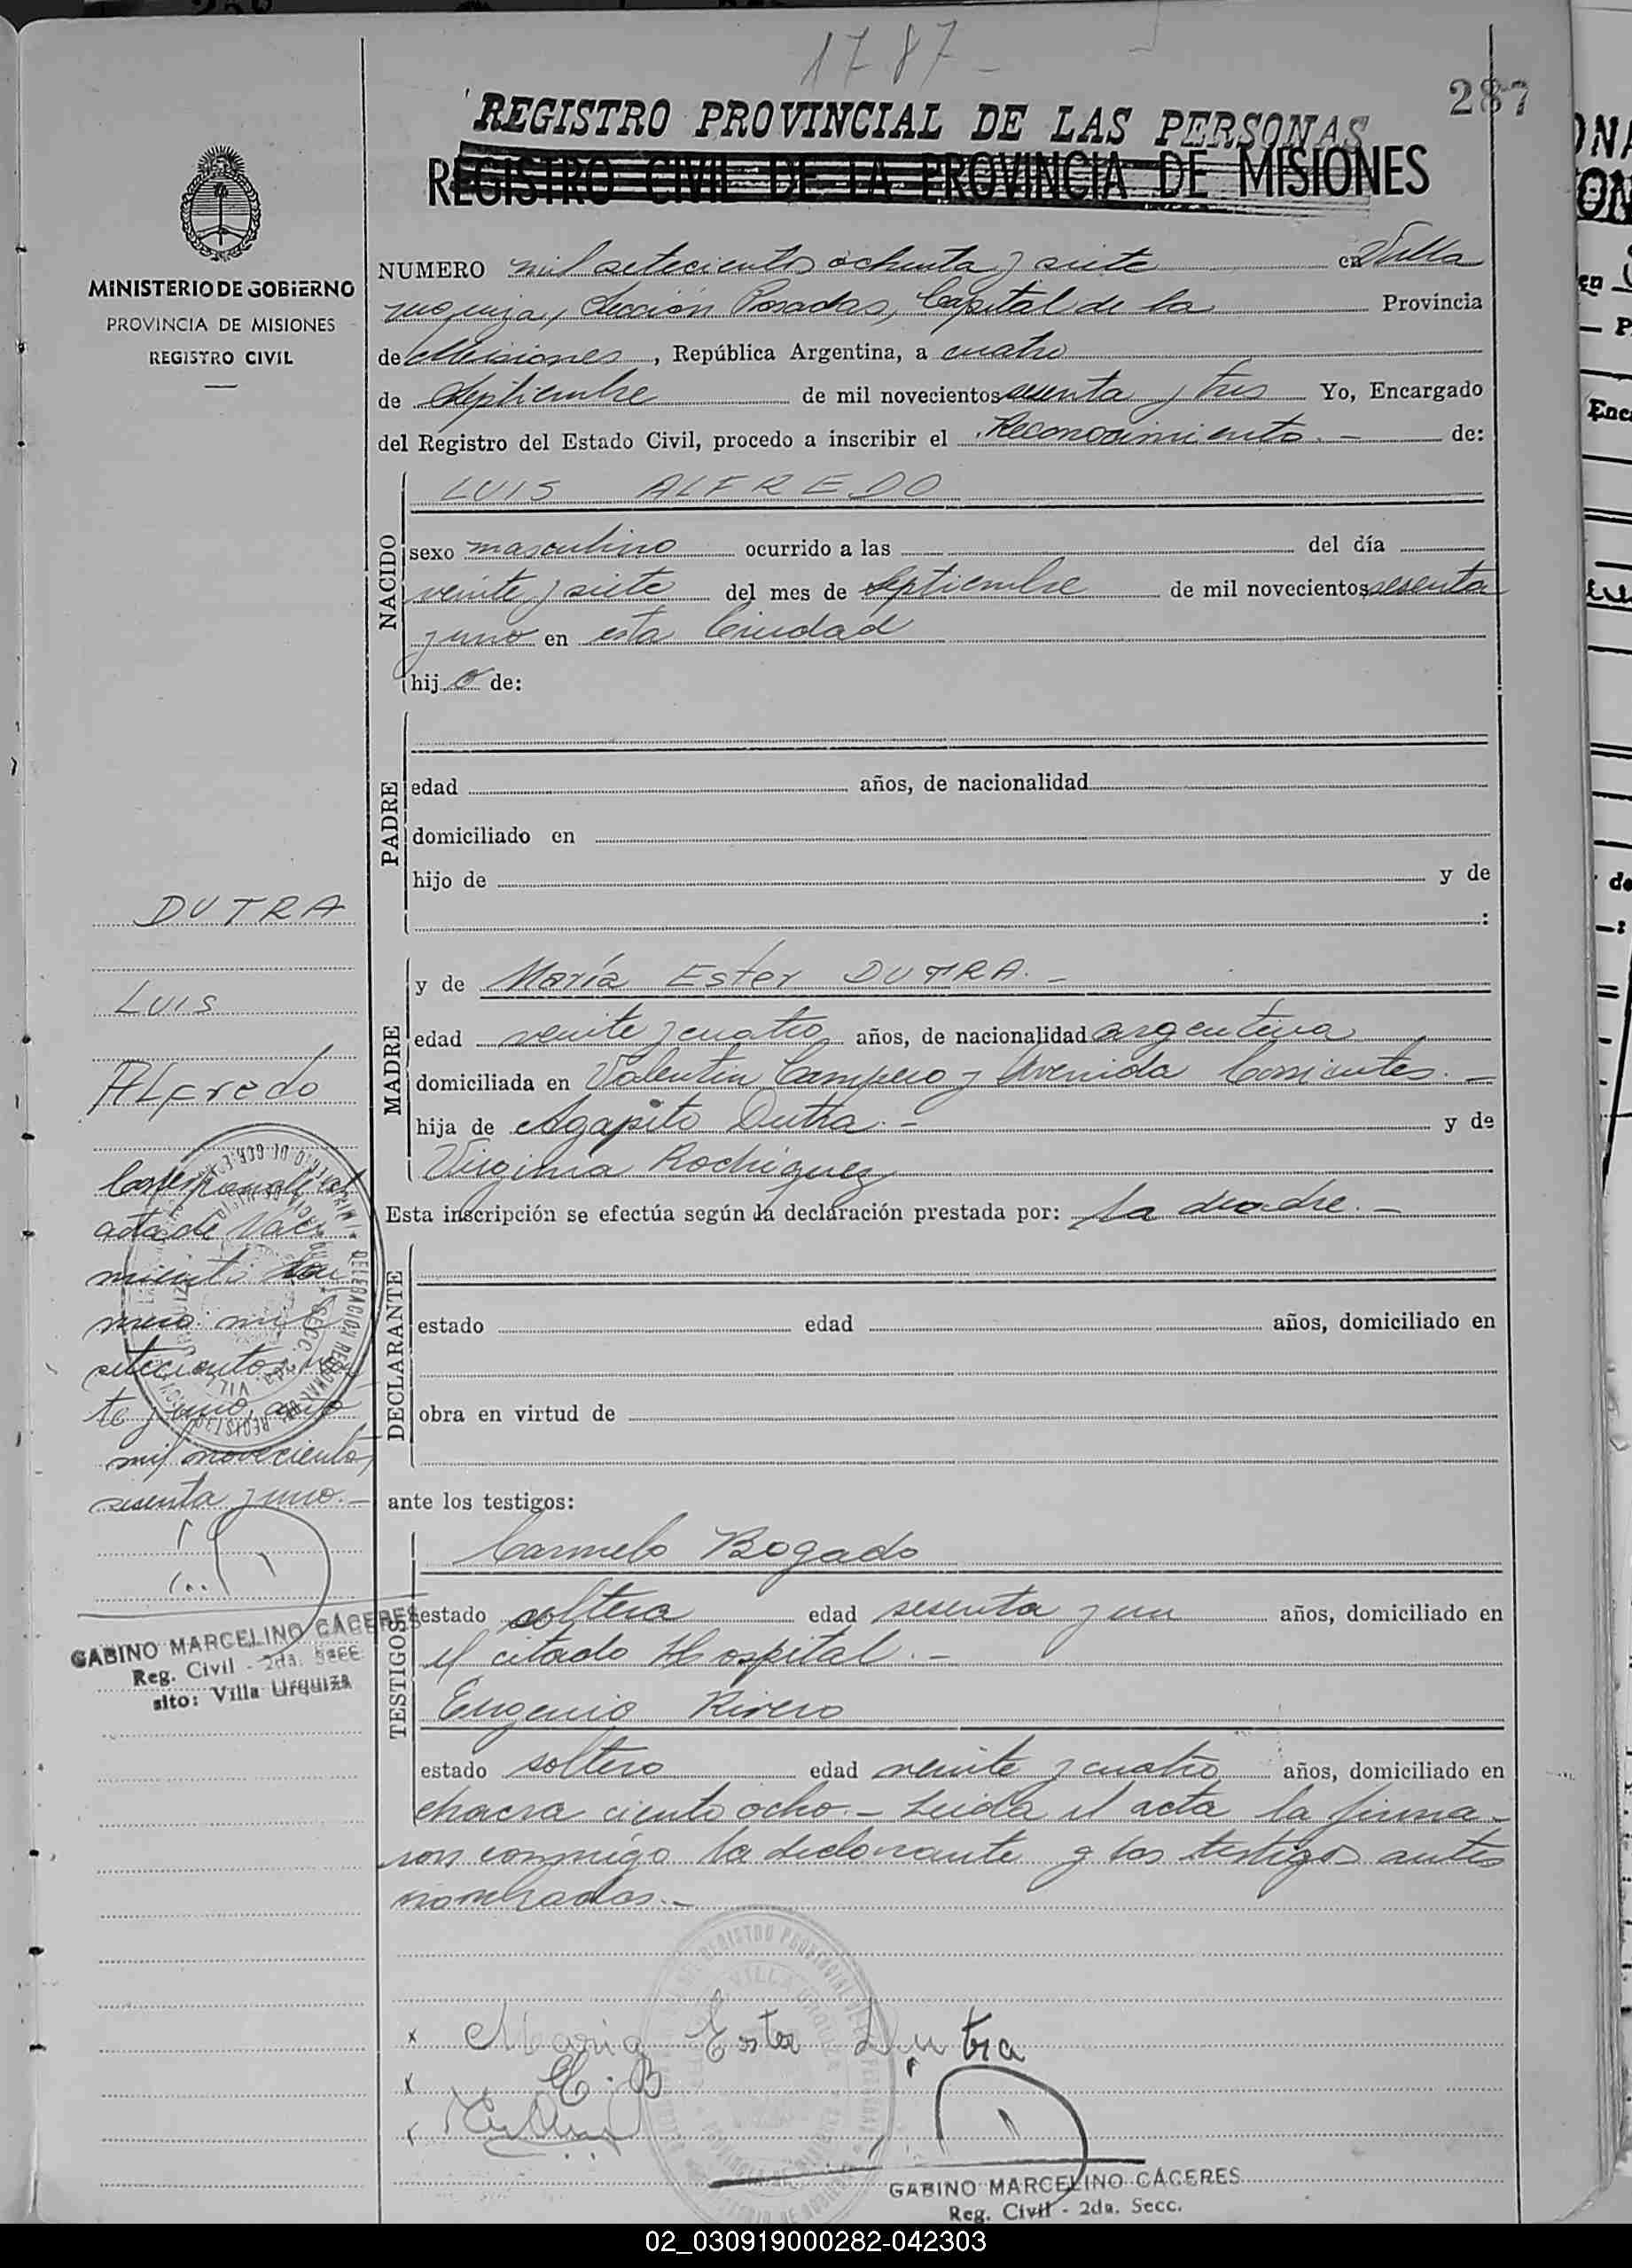 1787-
287
REGISTRO PROVINCIAL DE LAS PERSONAS
REGISTRO CIVIL DE LA PROVINCIA DE MISIONES
MINISTERIO DE GOBIERNO
PROVINCIA DE MISIONES
REGISTRO CIVIL
NUMERO mil setecientos ochenta y siete en Villa
urquiza, Sección Posadas, Capital de la Provincia
de Misiones, República Argentina, a cuatro
de Septiembre de mil novecientos sesenta y tres Yo, Encargado
del Registro del Estado Civil, procedo a inscribir el Reconocimiento.- de:
NACIDO
LUIS ALFREDO
sexo masculino ocurrido a las del día
veinte y siete del mes de Septiembre de mil novecientos sesenta
y uno en esta Ciudad
hijo de:
PADRE
edad años, de nacionalidad
domiciliado en
hijo de y de
:
MADRE
y de María Ester DUTRA.-
edad veinte y cuatro años, de nacionalidad argentina
domiciliada en Valentin Campero y Avenida Corrientes.-
hija de Agapito Dutra.- y de
Virginia Rodriguez
Esta inscripción se efectúa según la declaración prestada por: la madre.-
DECLARANTE
estado edad años, domiciliado en
obra en virtud de
ante los testigos:
TESTIGOS
Carmelo Bogado
estado soltera edad sesenta y un años, domiciliado en
el citado Hospital.-
Eugenio Rivero
estado soltero edad veinte y cuatro años, domiciliado en
chacra ciento ocho.- Leida el acta la firma-
ron conmigo la declarante y los testigos antes
nombrados.-
DUTRA
LUIS
ALFredo
acta de Naci
miento
mero mil
setecientos vein
te y uno, año
mil novecientos
sesenta y uno.-
GABINO MARCELINO CÁCERES
Reg. Civil - 2da. Secc
sito: Villa Urquiza
Maria Ester Dutra
C. B
GABINO MARCELINO CÁCERES
Reg. Civil - 2da. Secc.
02_030919000282-042303